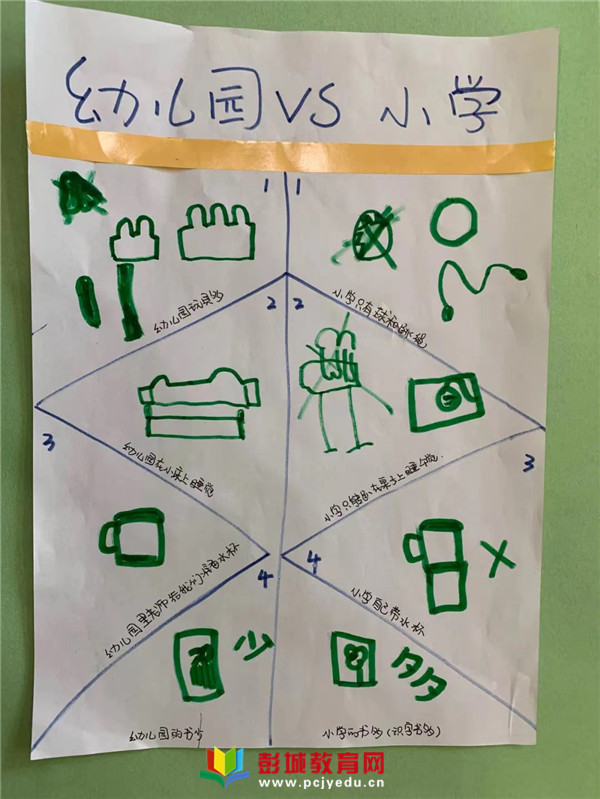 幼儿园 VS 小学
1 1
幼儿园玩具多
小学只有球和跳绳
2 2
幼儿园在小床上睡觉
小学只能趴在桌子上睡午觉.
3 3
幼儿园里老师给我们准备水杯
小学自己带水杯
4 4
少
多多
幼儿园的书少
小学的书多(识字书多)
彭城教育网
www.pcjyedu.com